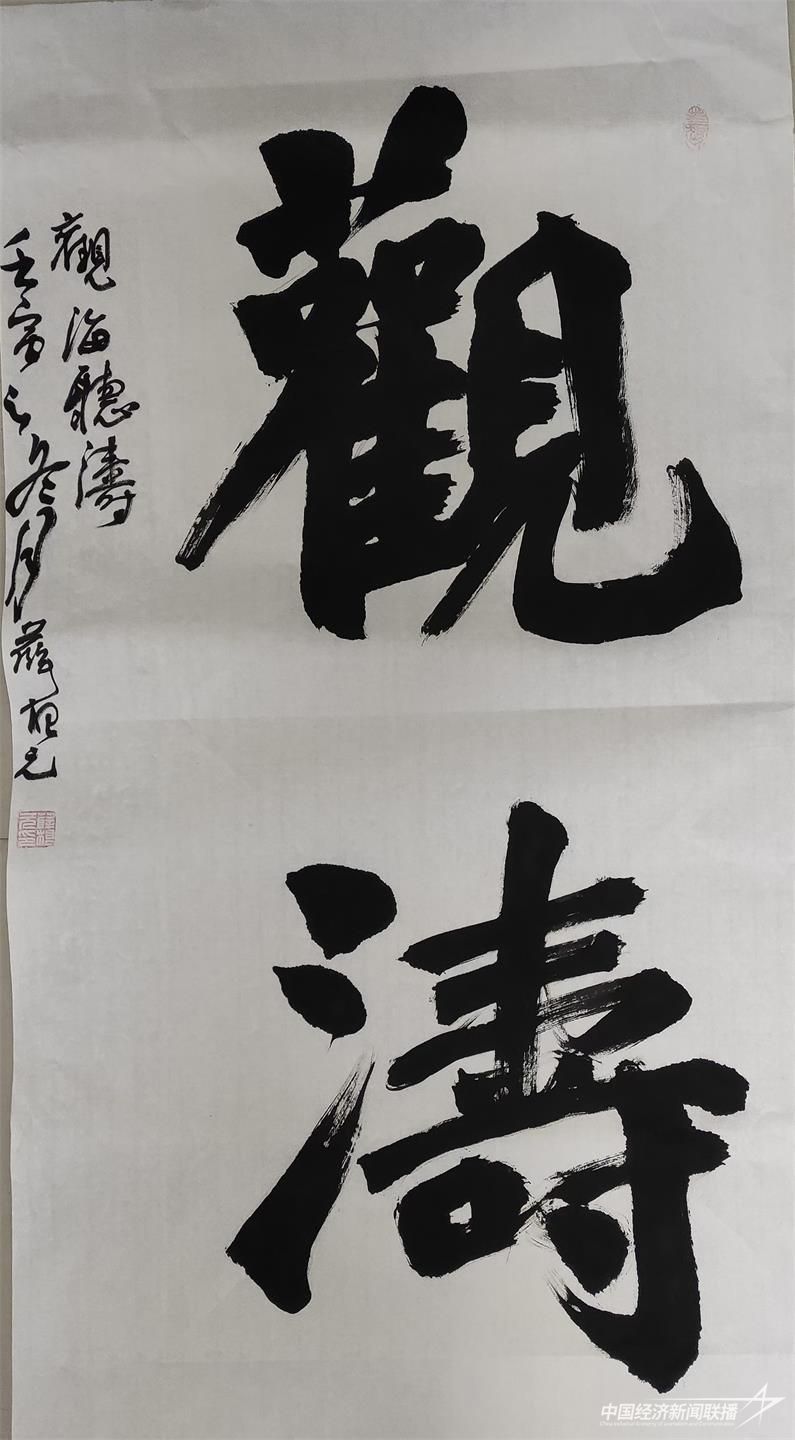 觀
濤
觀海聽濤
壬寅之冬月薛
中国经济新闻联播